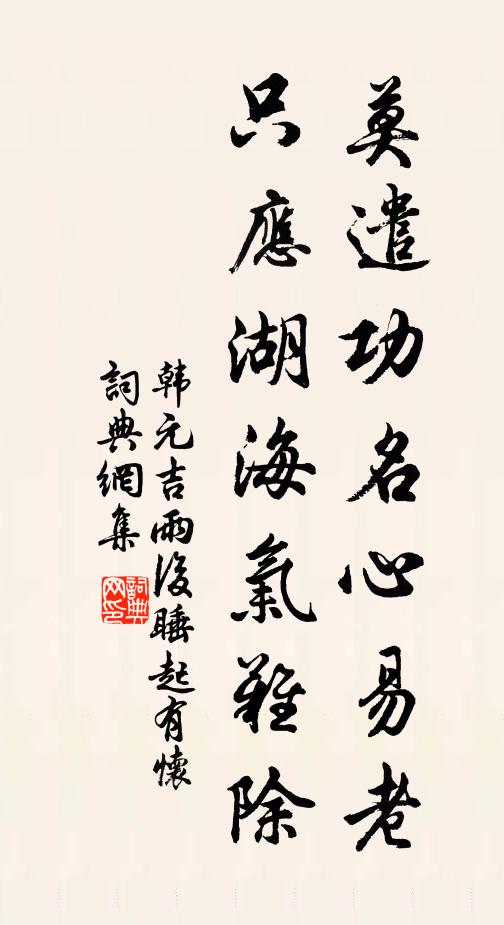 莫遣功名心易老
只應湖海氣難除
韩元吉雨後睡起有懷
詞典網集
詞典网印